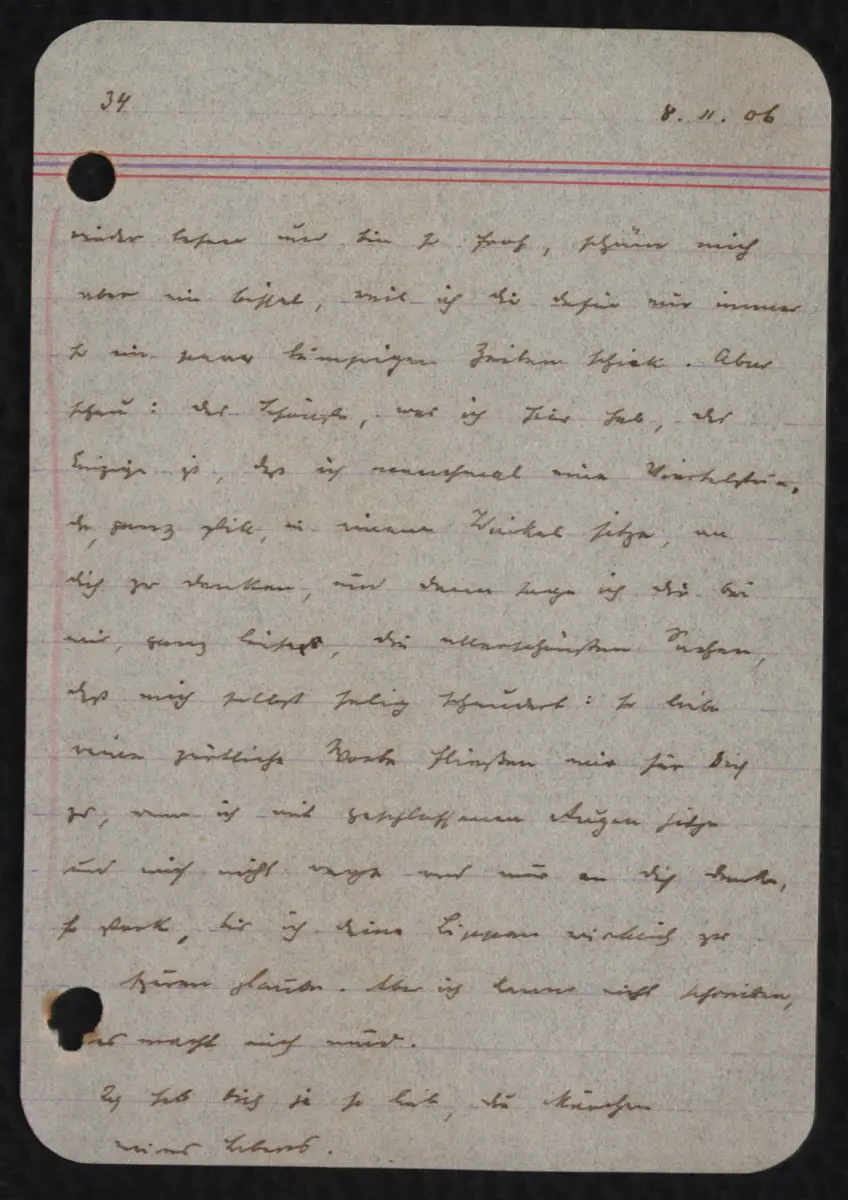 34
8. 11. 06
wieder lesen und bin so froh, schäm mich
aber ein bissel, weil ich dir dafür nur immer
so ein paar lumpigen Zeilen schick. Aber
schau: das Schönste, was ich hier hab, das
Einzige ist, daß ich manchmal eine Viertelstun-
de, ganz still, in einem Winkel sitze, an
dich zu denken, und dann sage ich dir bei
mir, ganz leise, die allerschönsten Sachen,
daß mich selbst selig schaudert: so liebe
reine zärtliche Worte fließen mir für Dich
zu, wenn ich mit geschlossenen Augen sitze
und mich nicht rege und nur an dich denke,
so stark, bis ich deine Lippen wirklich zu
spüren glaube. Aber ich kann nicht schreiben,
es macht mich müd.
Ich hab Dich ja so lieb, du Märchen
meines Lebens.